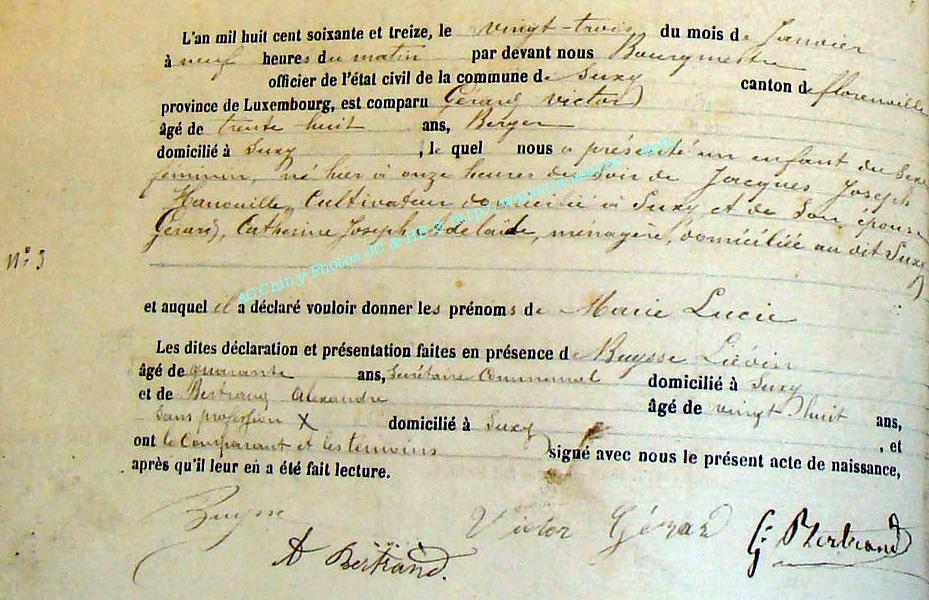 L'an mil huit cent soixante et treize, le vingt-trois du mois de Janvier
à neuf heures du matin par devant nous Bourgmestre
officier de l'état civil de la commune de Suxy canton de florenville
province de Luxembourg, est comparu Gérard Victor
âgé de trente huit ans, Berger
domicilié à Suxy, le quel nous a présenté un enfant du Sexe
feminin, né hier à onze heures du soir de Jacques Joseph
Hanouille, Cultivateur domicilié à Suxy et de Son épouse
Gérard, Catherine Joseph Adelaïde, ménagère, domiciliée au dit Suxy
N° 3
et auquel il a déclaré vouloir donner les prénoms de Marie Lucie
Les dites déclaration et présentation faites en présence de Buysse Liévin
âgé de quarante ans, Secrétaire Communal domicilié à Suxy
et de Bertrand Alexandre âgé de vingt huit ans,
Sans profession X domicilié à Suxy, et
ont le Comparant et les temoins signé avec nous le présent acte de naissance,
après qu'il leur en a été fait lecture.
Buysse Victor Gérard G. Bertrand
A Bertrand.
AC Chiny Photos JC & HB &